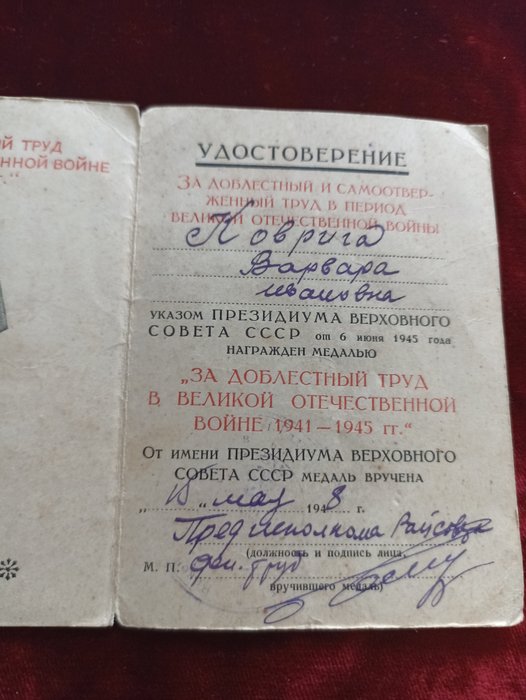 Й ТРУД
ЕННОЙ ВОЙНЕ
."
УДОСТОВЕРЕНИЕ
ЗА ДОБЛЕСТНЫЙ И САМООТВЕР-
ЖЕННЫЙ ТРУД В ПЕРИОД
ВЕЛИКОЙ ОТЕЧЕСТВЕННОЙ ВОЙНЫ
Коврига
Варвара
Ивановна
УКАЗОМ ПРЕЗИДИУМА ВЕРХОВНОГО
СОВЕТА СССР от 6 июня 1945 года
НАГРАЖДЕН МЕДАЛЬЮ
„ЗА ДОБЛЕСТНЫЙ ТРУД
В ВЕЛИКОЙ ОТЕЧЕСТВЕННОЙ
ВОЙНЕ 1941—1945 гг."
От имени ПРЕЗИДИУМА ВЕРХОВНОГО
СОВЕТА СССР МЕДАЛЬ ВРУЧЕНА
„15" мая 1948 г.
Пред исполкома Райсовета
(должность и подпись лица,
М. П. деп. труд
вручившего медаль)